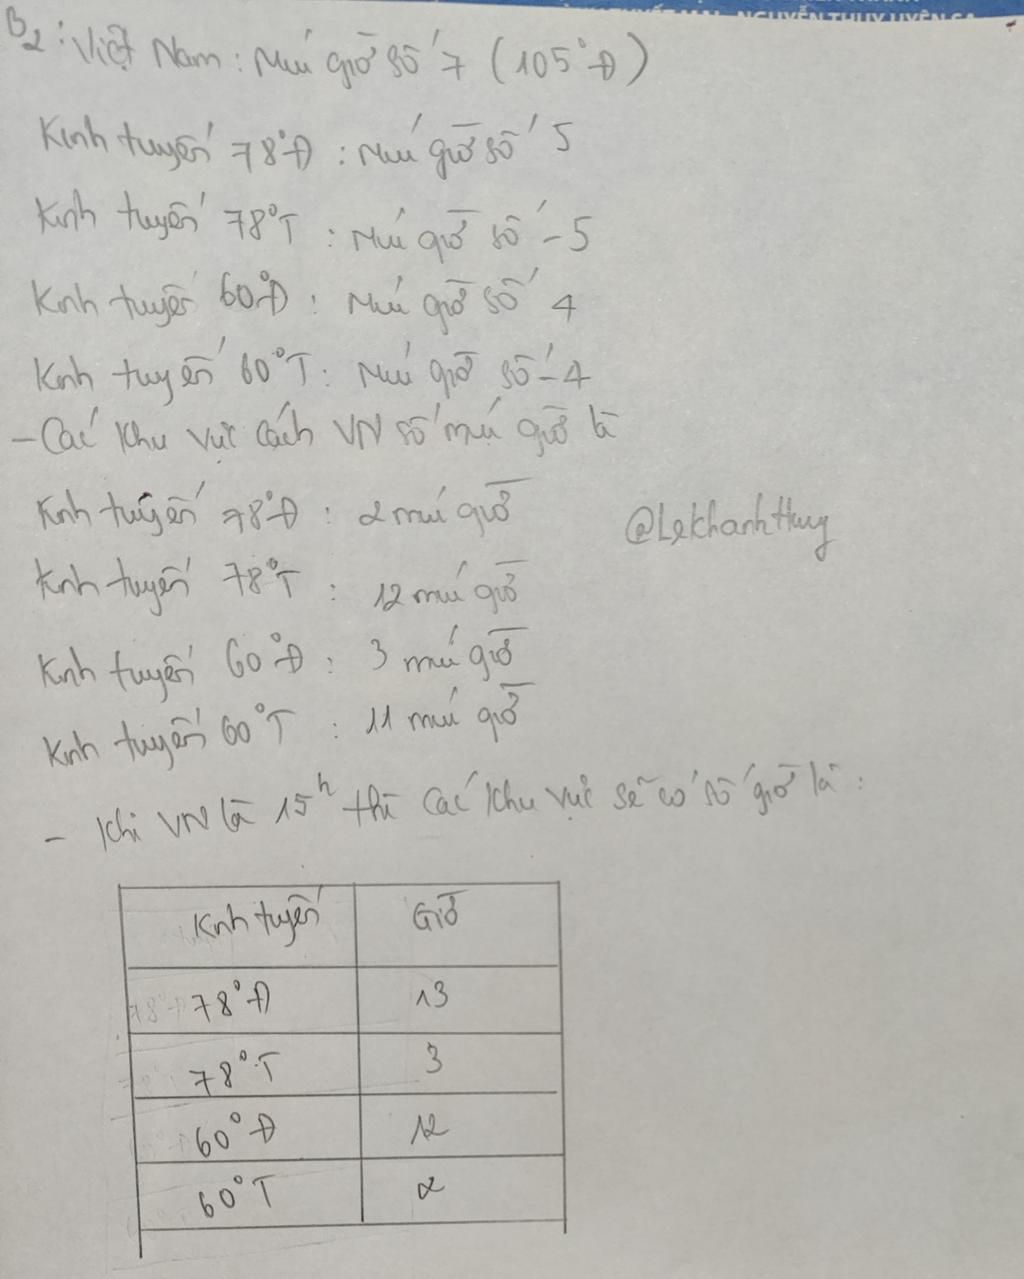 B2: Việt Nam: Múi giờ số 7 (105°Đ)
Kinh tuyến 78°Đ: Múi giờ số 5
Kinh tuyến 78°T: Múi giờ số -5
Kinh tuyến 60°Đ: Múi giờ số 4
Kinh tuyến 60°T: Múi giờ số -4
- Các khu vực cách VN số múi giờ là
Kinh tuyến 78°Đ: 2 múi giờ
@Lekhanhthuy
Kinh tuyến 78°T: 12 múi giờ
Kinh tuyến 60°Đ: 3 múi giờ
Kinh tuyến 60°T: 11 múi giờ
- Khi VN là 15h thì các khu vực sẽ có số giờ là:
Kinh tuyến Giờ
78°Đ 13
78°T 3
60°Đ 12
60°T 2